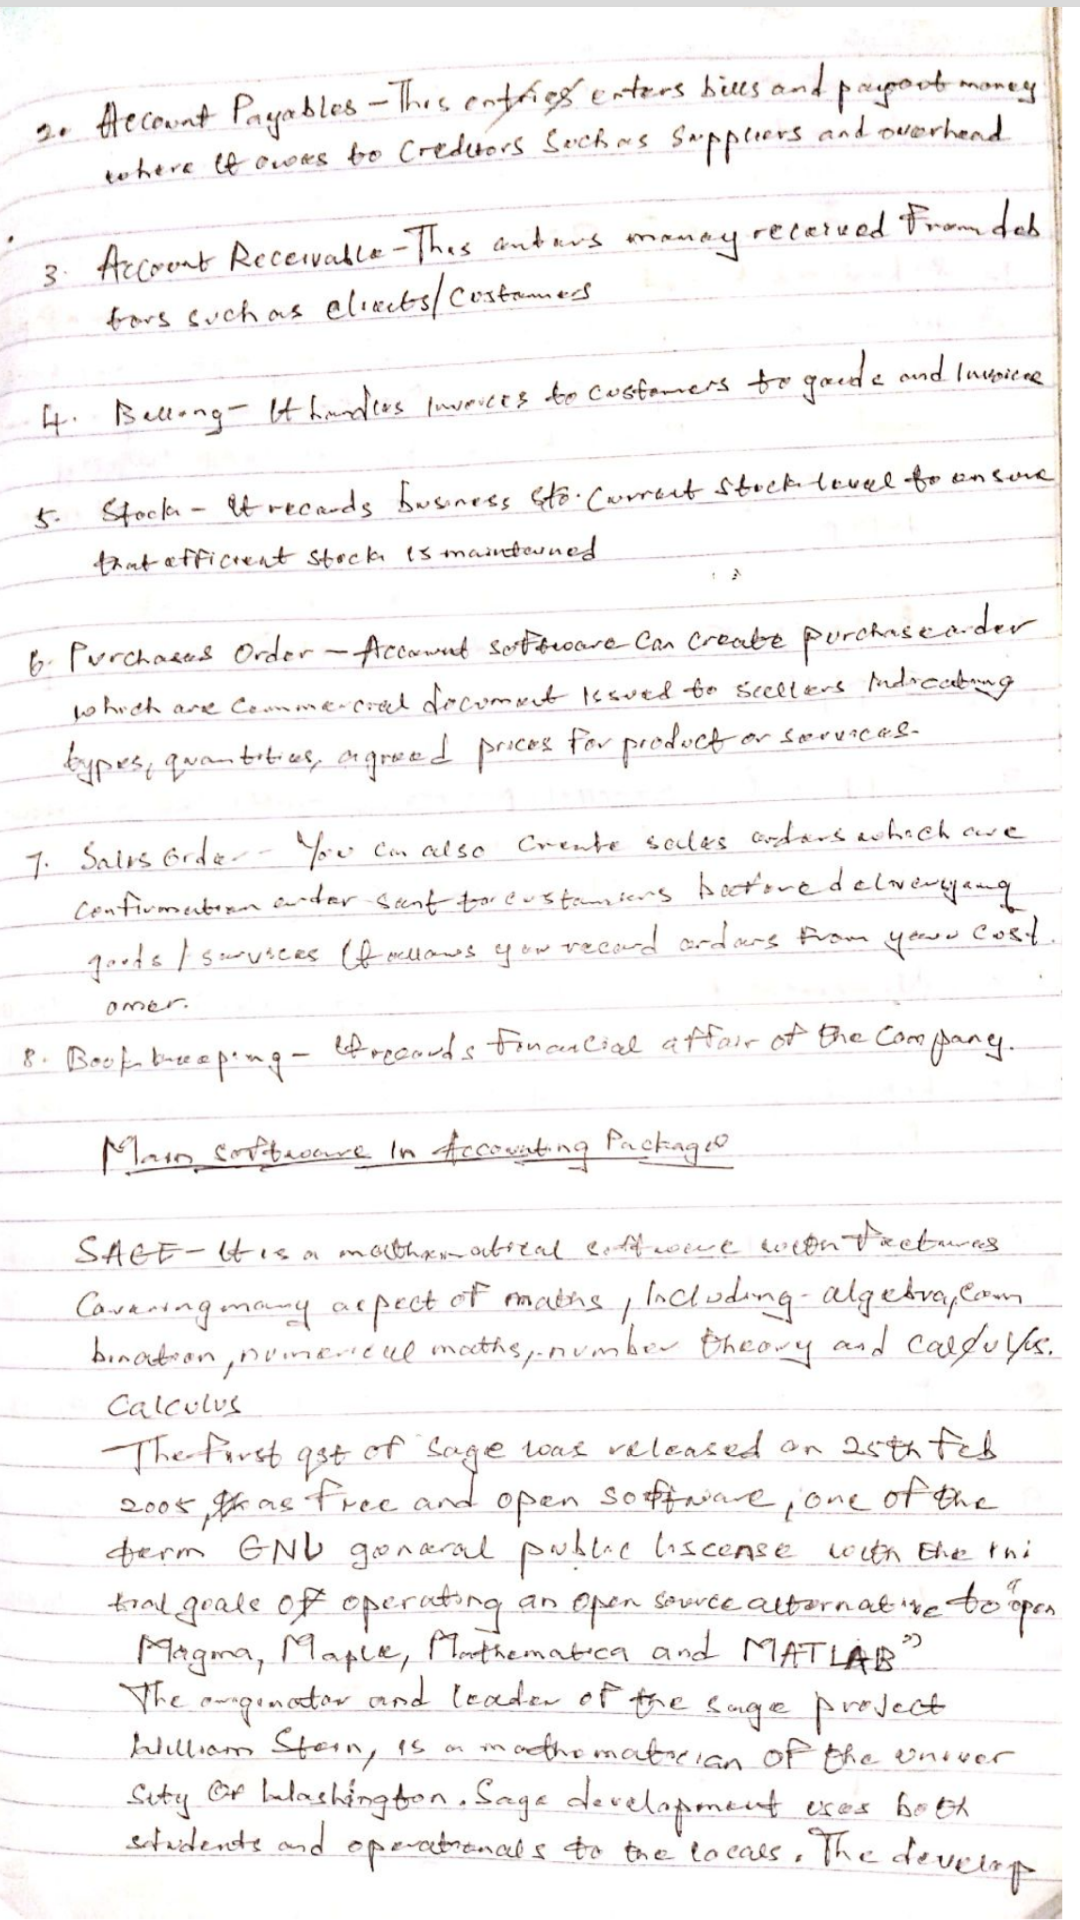 2. Account Payables - This entries enters bills and payout money
where it owes to Creditors Such as Suppliers and overhead
3. Account Receivable - This enters money received from deb
tors such as clients/Customers
4. Billing - It handles invoices to customers to goods and Invoice
5. Stock - It records business sto. Current Stock level to ensure
that efficient stock is maintained
6. Purchases Order - Account software Can create purchase order
which are Commercial document issued to sellers indicating
types, quantities, agreed prices for product or services.
7. Sales Order - You can also create sales orders which are
Confirmation order sent to customers before delivery
goods / services It allows you record orders from your Cost.
omer.
8. Book keeping - It records financial affair of the Company.
Main Software In Accounting Package
SAGE - It is a mathematical software with features
Covering many aspect of maths, Including algebra, com
bination, numerical maths, number theory and calculus.
Calculus
The first qst of Sage was released on 25th Feb
2005, as free and open software, one of the
term GNU general public liscense with the ini
tial goals of operating an open source alternative to "open
Magma, Maple, Mathematica and MATLAB"
The originator and leader of the sage project
William Stein, is a mathematician of the univer
sity of Washington. Sage development uses both
students and operationals to the locals. The develop